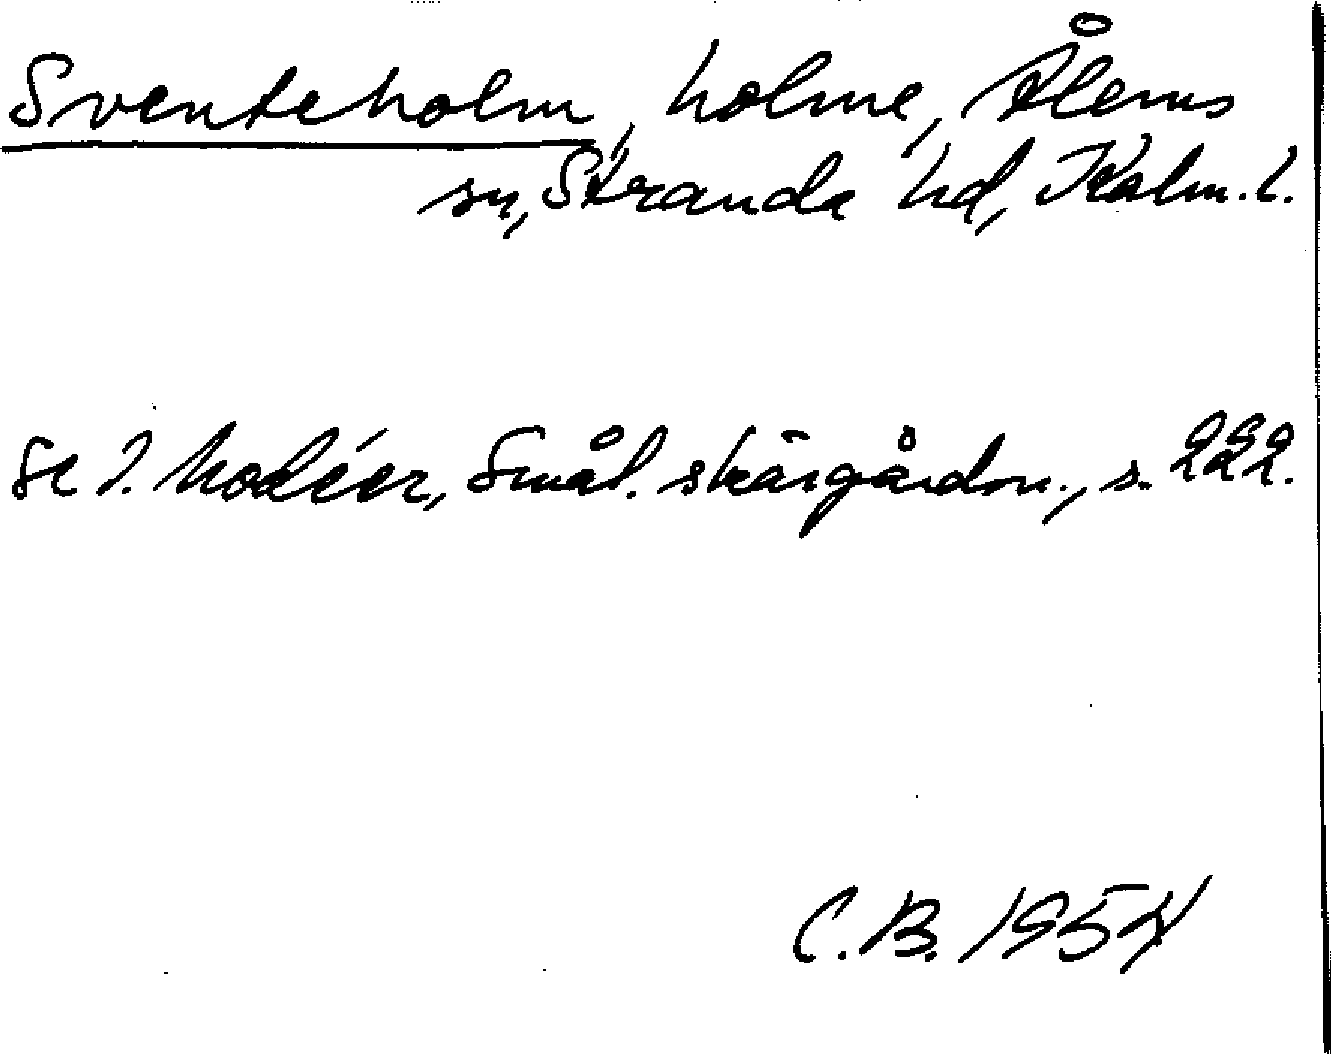 Sventeholm, holme, Ålems
sn, Stranda hd, Kalm. l.
Se I. Modéer, Smål. skärgårdsn., s. 222.
C.B. 1954